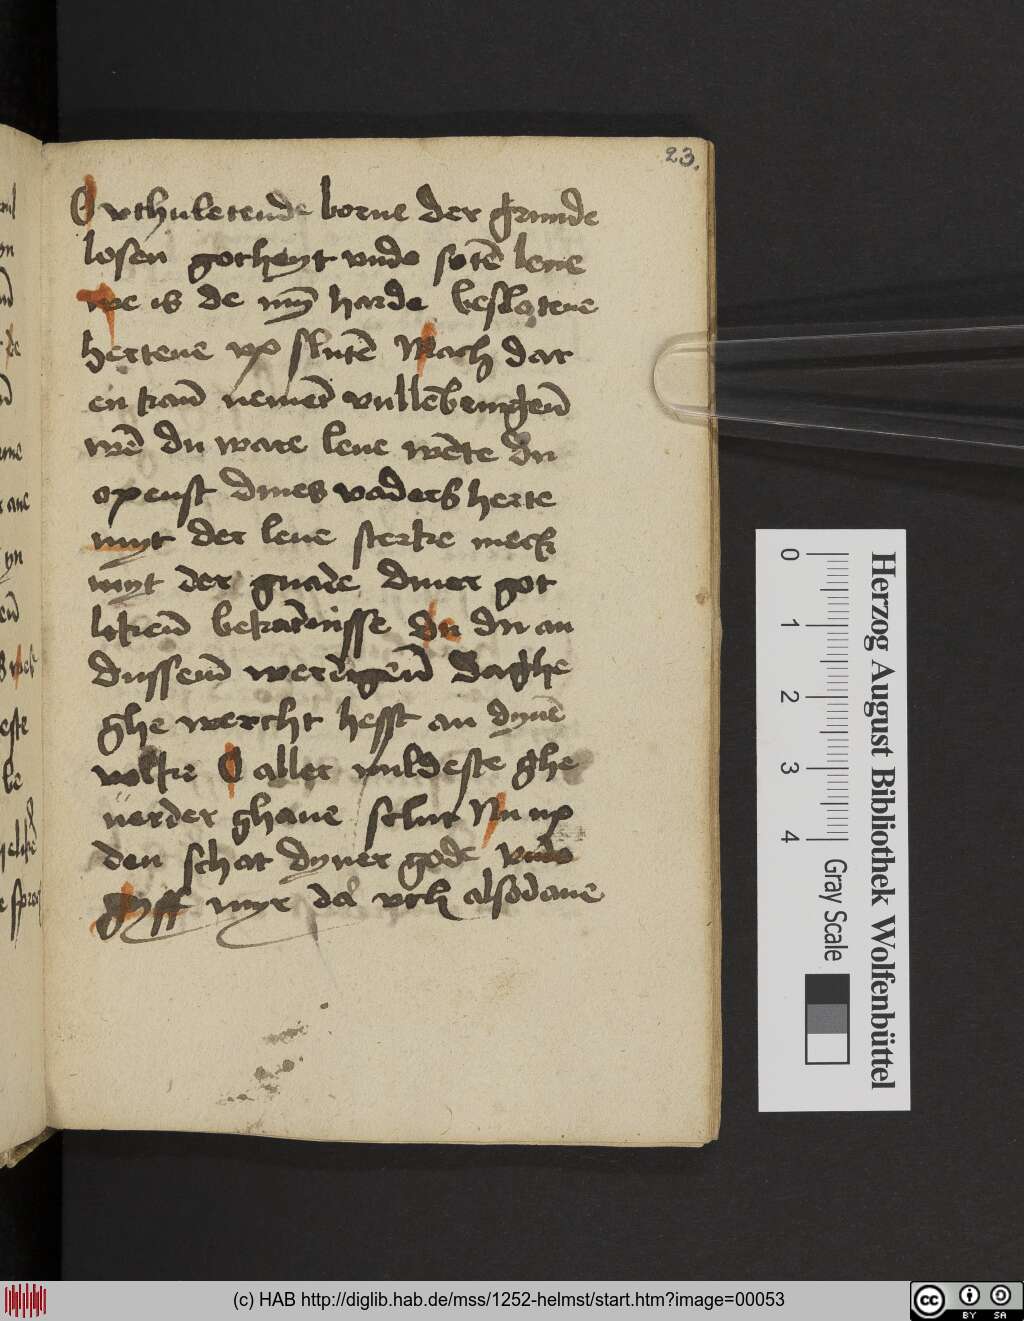 23.
O vthuletende borne der grunde
losen gotheyt vnde sotē leue
we is de mȳ harde beslotene
hertene vp slutē Mach dat
en kan̄ nemēt vullēbringen̄
wē du ware leue wēte du
openst dines vaders herte
myt der leue sterke meck
myt der gnade diner got
liken̄ bekātnisse du an
dussem̄ werdigēn̄ daghe
ghe wercht hefst an dynē
volke O aller mildeste ghe
uerder ghaue slut Nu up
den schat dyner gode vnde
gyff myr dat vth alsodane
Herzog August Bibliothek Wolfenbüttel
0 1 2 3 4
Gray Scale
(c) HAB http://diglib.hab.de/mss/1252-helmst/start.htm?image=00053
cc BY SA